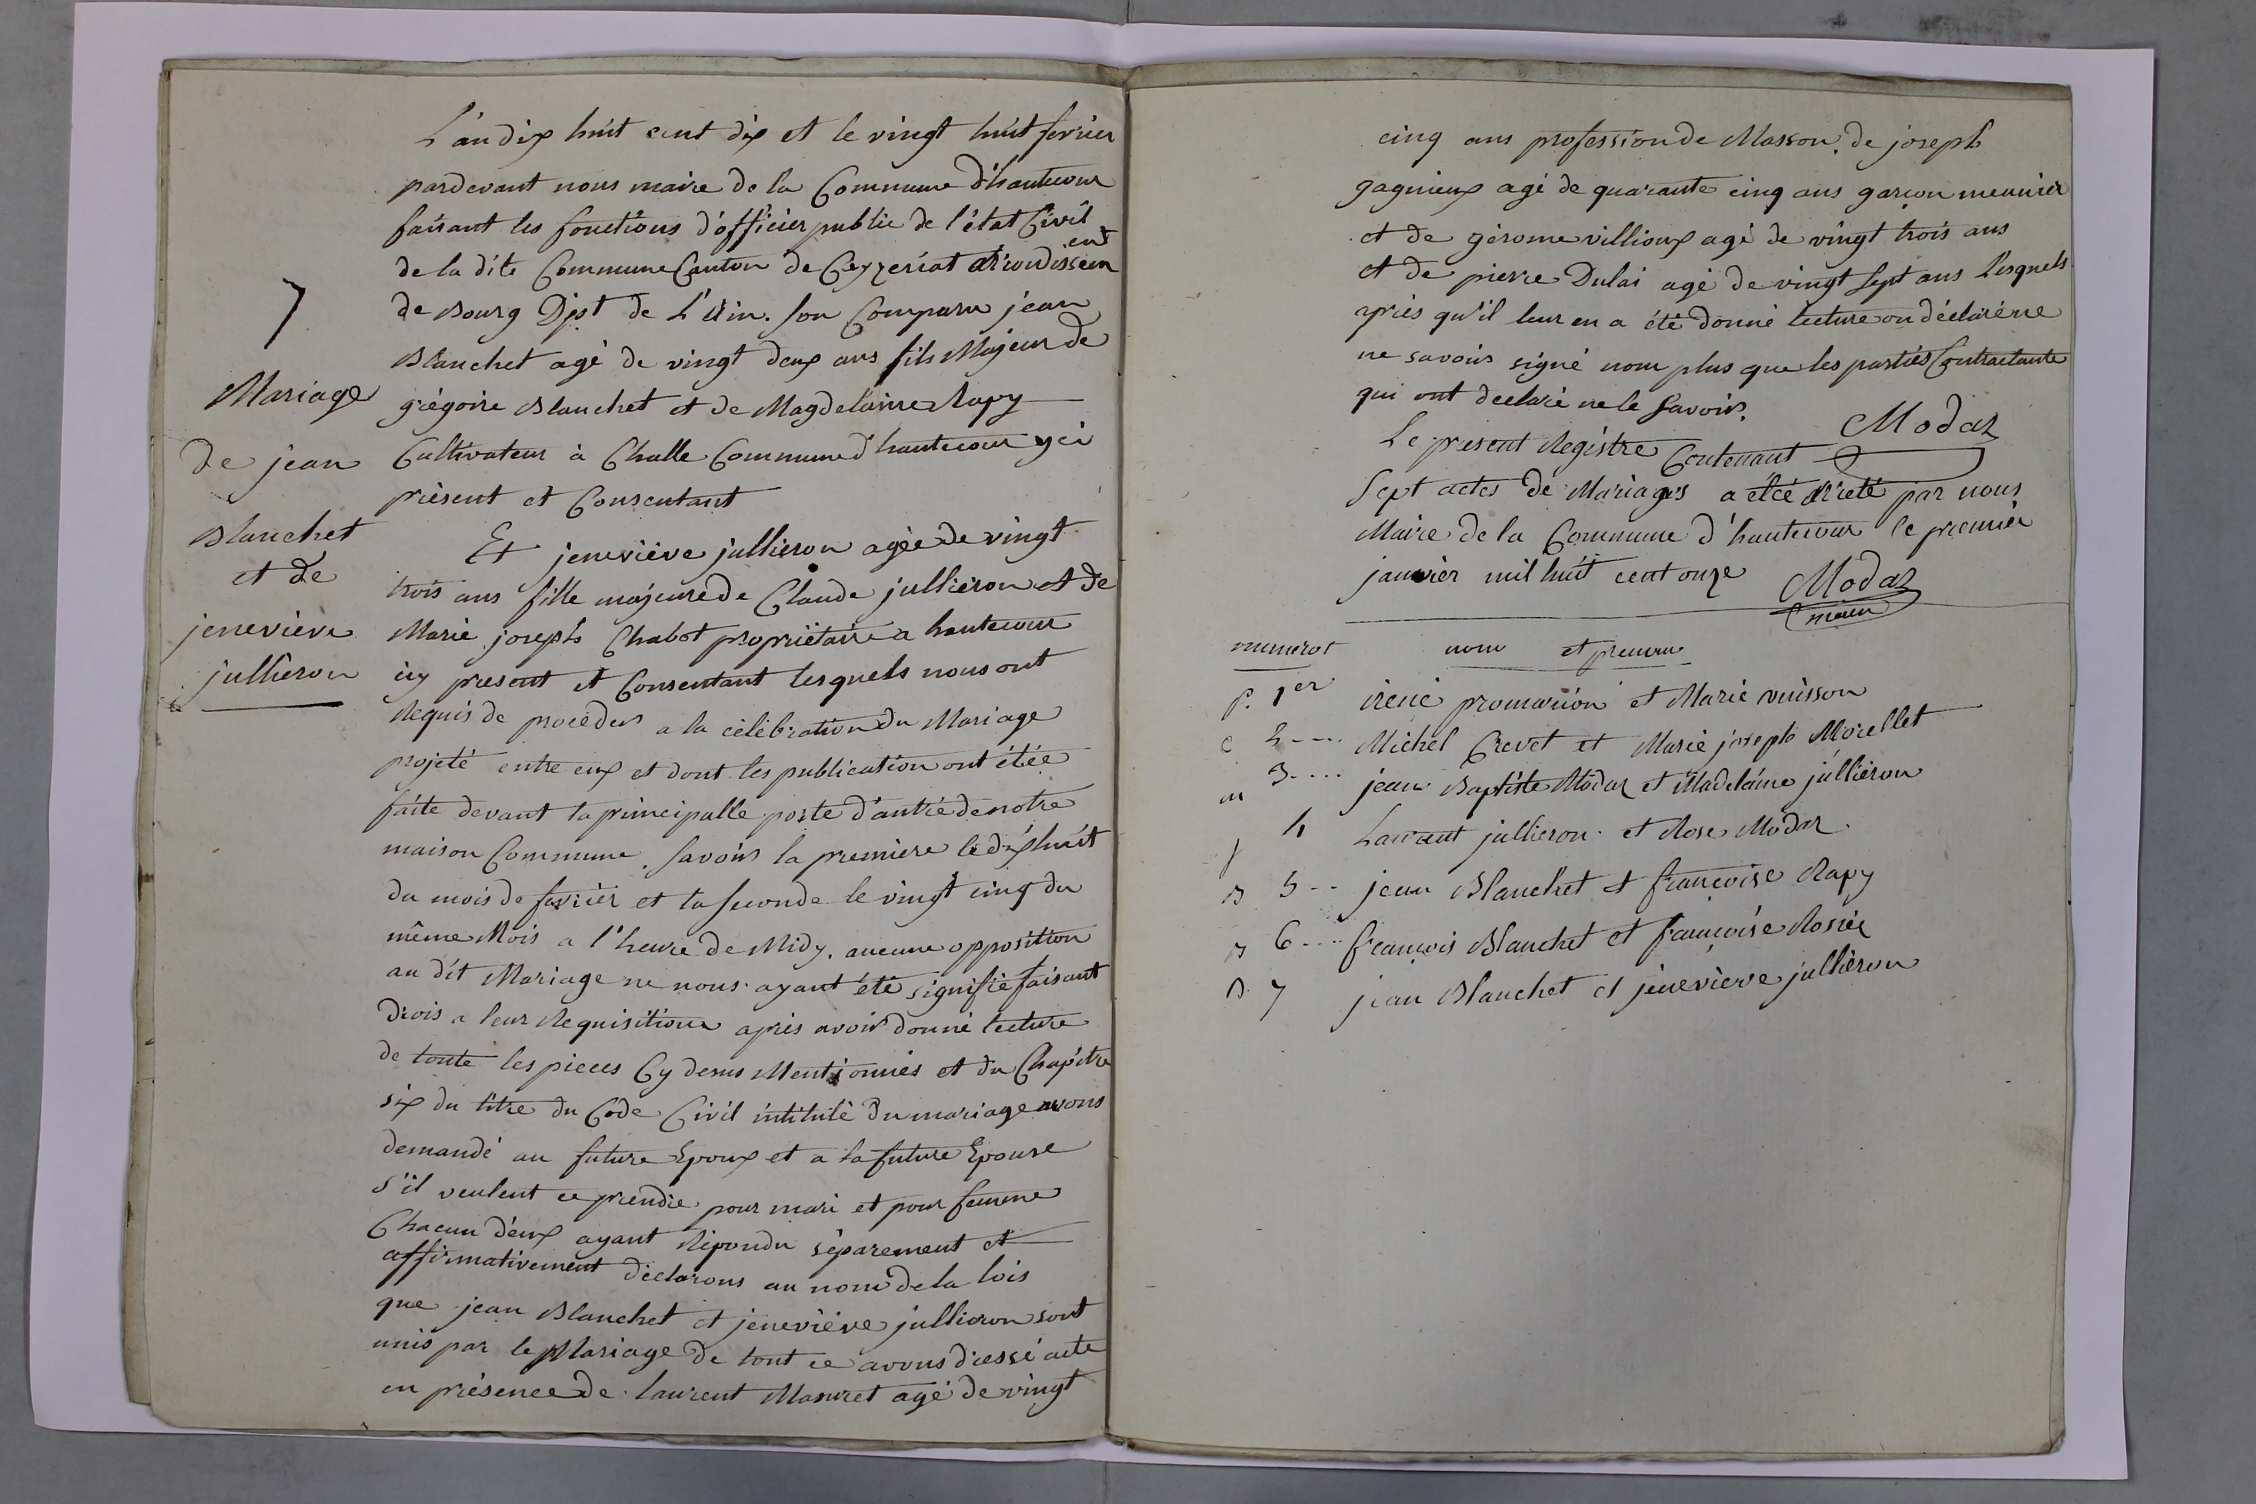 7
Mariage
de jean
Blanchet
et de
jeneviève
jullieron
L'an dix huit cent dix et le vingt huit fevrier
pardevant nous maire de la Commune d'hautecour
faisant les fonctions d'officier public de l'état Civil
de la dite Commune Canton de Ceyzeriat arrondissem
ent
de Bourg Dpt de L'Ain. son Comparu jean
Blanchet agé de vingt deux ans fils Majeur de
grégoire Blanchet et de Magdelaine Rapy
Cultivateur à Challe Commune d'hautecour yci
présent et Consentant
Et jeneviève jullieron agée de vingt
trois ans fille majeure de Claude jullieron et de
Marie joseph Chabot propriètaire a hautecour
icy present et Consentant lesquels nous ont
Requis de procéder a la célébration du Mariage
projeté entre eux et dont les publication ont étée
faite devant la principalle porte d'antré de notre
maison Commune. savoir la premiere le dix huit
du mois de fevrier et la seconde le vingt cinq du
même Mois a l'heure de Midy. aucune opposition
au dit Mariage ne nous ayant été signifié faisant
Drois a leur Requisition après avoir donné lecture
de toute les pieces Cy desus Mentionnés et du Chapitre
six du titre du Code Civil intitulé du mariage avons
demandé au future Epoux et a la future Epouse
s'il veulent ce prendre pour mari et pour femme
Chacun d'eux ayant Répondu séparement et
affirmativement déclarons au nom de la lois
que jean Blanchet et jeneviève jullieron sont
unis par le Mariage de tout ce avons dressé acte
en présence de laurent Masuret agé de vingt
cinq ans profession de Masson. de joseph
gagnieux agé de quarante cinq ans garçon meunier
et de gérome villioux agé de vingt trois ans
et de pierre Dulai agé de vingt sept ans Lesquels
après qu'il leur en a été donné lecture on déclaré ne
ne savoir signé nom plus que les parties Contractante
qui ont declaré ne le savoir.
Modas
Le présent Régistre Contenant
Sept actes de Mariages a étée areté par nous
Maire de la Commune d'hautecour le premier
janvier mil huit cent onze
Modas
maire
numerot nom et prenom
P. 1er irené promonion et Marie vuisson
C 2---- Michel Crevet et Marie joseph Morellet
M 3---- jean Baptiste Modas et Madelaine jullieron
J 4 Laurant jullieron et Rose Modas
B 5-- jean Blanchet et françoise Rapy
B 6---- françois Blanchet et françoise Rosier
B 7 jean Blanchet et jeneviève jullieron